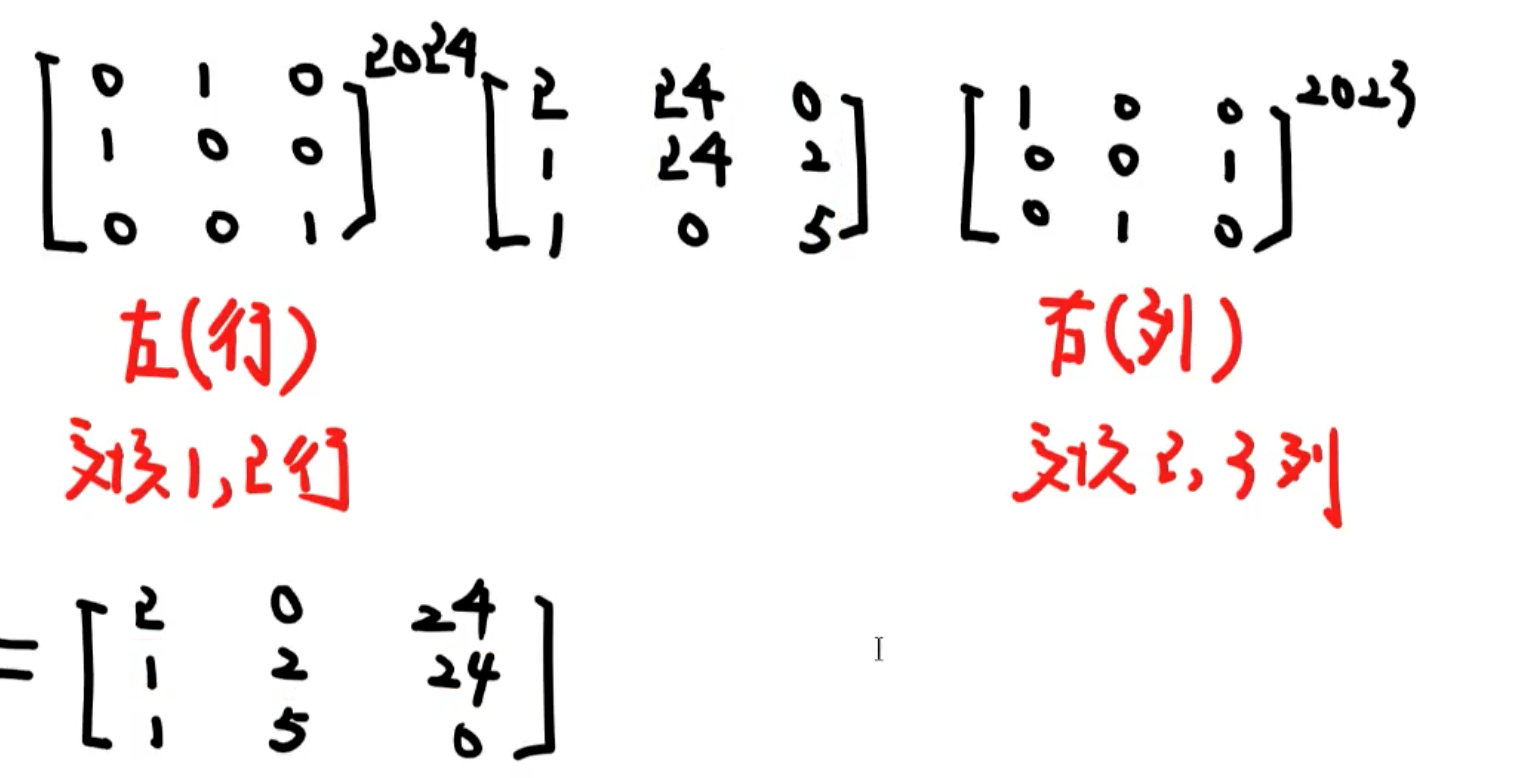 [0 1 0; 1 0 0; 0 0 1]^2024 [2 24 0; 1 24 2; 1 0 5] [1 0 0; 0 0 1; 0 1 0]^2023
左(行) 右(列)
对换1,2行 对换2,3列
= [2 0 24; 1 2 24; 1 5 0]